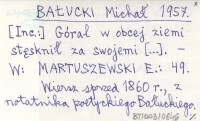 BAŁUCKI Michał 1957.
[Inc.:] Góral w obcej ziemi
stęsknił za swojemi [..]. —
W: MARTUSZEWSKI E.: 49.
Wiersz sprzed 1860 r., z
notatnika poetyckiego Bałuckiego.